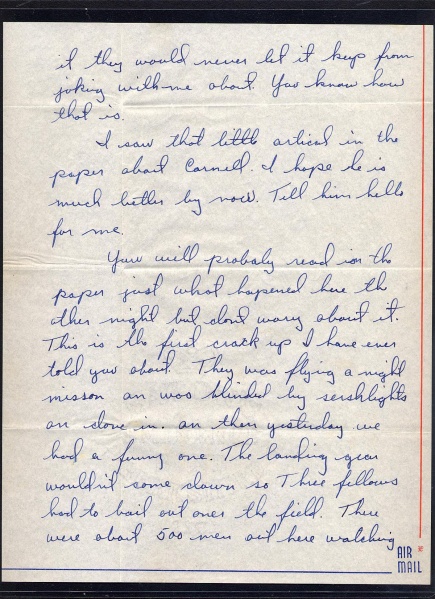 it they would never let it keep from
joking with me about. You know how
that is.
I saw that little artical in the
paper about Carnell. I hope he is
much better by now. Tell him hello
for me.
You will probaly read in the
paper just what hapened here the
other night but dont wory about it.
This is the first crack up I have ever
told you about. They was flying a night
misson an was blinded by sershlights
an dove in. an then yesterday we
had a funny one. The landing gear
wouldn't come down so Three fellows
had to bail out over the field. There
were about 500 men out here watching
AIR
MAIL